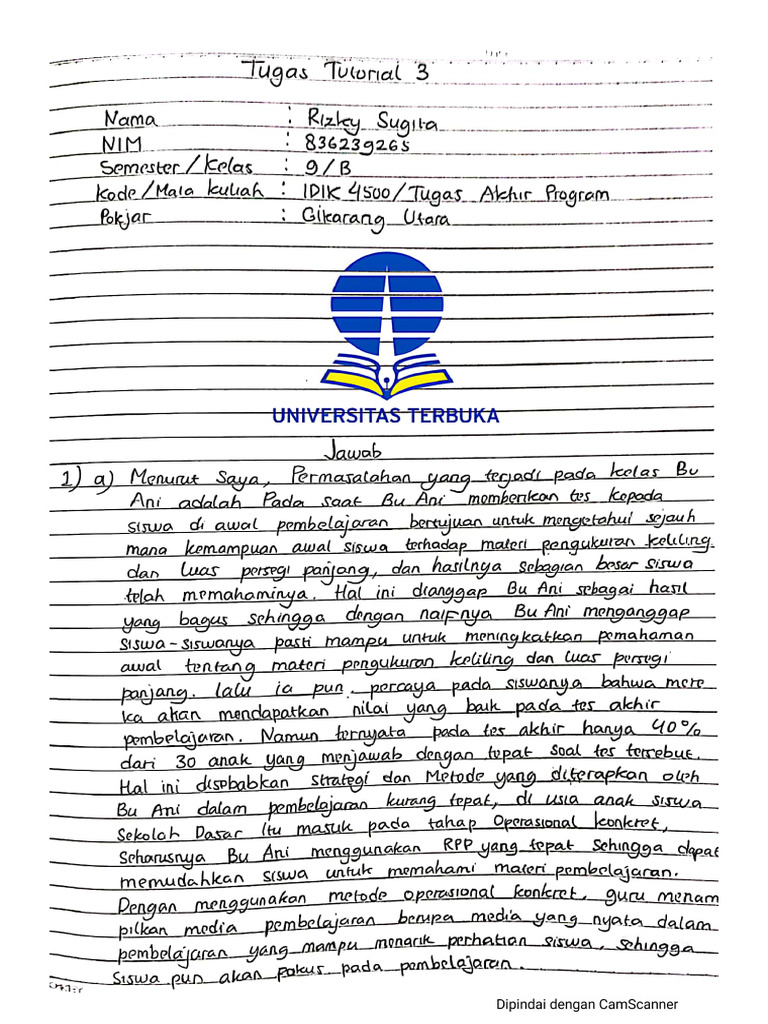 Tugas Tutorial 3
Nama : Rizky Sugita
NIM : 836239265
Semester/Kelas : 9/B
Kode/Mata kuliah : IDIK 4500/Tugas Akhir Program
Pokjar : Cikarang Utara
UNIVERSITAS TERBUKA
Jawab
1) a) Menurut Saya, Permasalahan yang terjadi pada kelas Bu
Ani adalah Pada saat Bu Ani memberikan tes kepada
siswa di awal pembelajaran bertujuan untuk mengetahui sejauh
mana kemampuan awal siswa terhadap materi pengukuran keliling
dan luas persegi panjang, dan hasilnya sebagian besar siswa
telah memahaminya. Hal ini dianggap Bu Ani sebagai hasil
yang bagus sehingga dengan naifnya Bu Ani menganggap
siswa-siswanya pasti mampu untuk meningkatkan pemahaman
awal tentang materi pengukuran keliling dan luas persegi
panjang. lalu ia pun percaya pada siswanya bahwa mere
ka akan mendapatkan nilai yang baik pada tes akhir
pembelajaran. Namun ternyata pada tes akhir hanya 40%
dari 30 anak yang menjawab dengan tepat soal tes tersebut.
Hal ini disebabkan strategi dan Metode yang diterapkan oleh
Bu Ani dalam pembelajaran kurang tepat, di usia anak siswa
Sekolah Dasar itu masuk pada tahap Operasional konkret,
Seharusnya Bu Ani menggunakan RPP yang tepat Sehingga dapat
memudahkan siswa untuk memahami materi pembelajaran.
Dengan menggunakan metode operasional konkret, guru menam
pilkan media pembelajaran berupa media yang nyata dalam
pembelajaran yang mampu menarik perhatian siswa, sehingga
Siswa pun akan fokus pada pembelajaran.
Dipindai dengan CamScanner